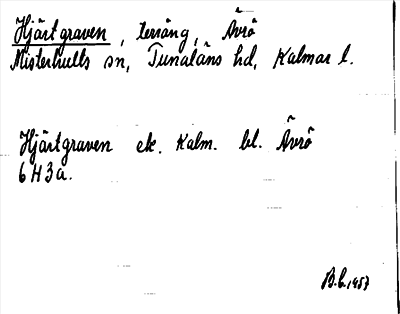 Hjärtgraven, terräng, Ävrö
Misterhults sn, Tunaläns hd, Kalmar l.
Hjärtgraven ek. Kalm. bl. Ävrö
6 H 3 a.
1957